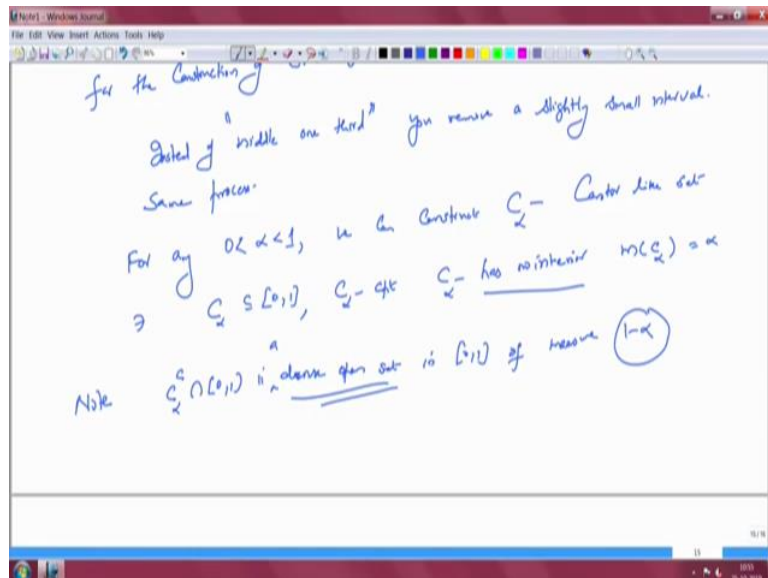 Note1 - Windows Journal
File Edit View Insert Actions Tools Help
for the Construction of
Insted of "middle one third" you remove a slightly small interval.
Same process.
For any 0 < α < 1, we can construct C_α - Cantor like set
∋ C_α ⊆ [0,1], C_α - cpt C_α - has no interior m(C_α) = α
Note C_α^c ∩ [0,1] is a dense open set in [0,1] of measure 1-α
15/16
15